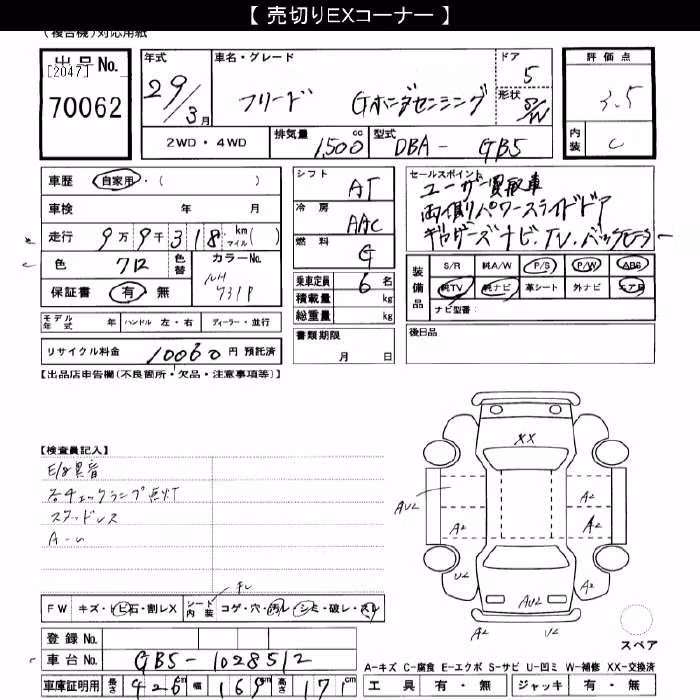 【 売切りEXコーナー 】
(複合機)対応用紙
出品No.
[2047]
70062
年式 29/3月
車名・グレード フリード Gホンダセンシング
ドア 5
形状 S/W
評価点 3.5
内装 C
2WD・4WD
排気量 1,500 cc
型式 DBA- GB5
車歴 自家用・( )
車検 年 月
走行 9万9千318 km マイル( )
色 クロ 色替 カラーNo. NH 731P
保証書 有・無
シフト AT
冷房 AAC
燃料 G
乗車定員 6名
積載量 kg
総重量 kg
書類期限 月 日
セールスポイント
ユーザー買取車
両側パワースライドドア
ギャザーズナビ.TV.バックモニター
装備品
S/R 純A/W P/S P/W ABS
純TV 純ナビ 革シート 外ナビ エアB
ナビ型番:
後日品
モデル年式 年 ハンドル 左・右 ディーラー・並行
リサイクル料金 10060 円 預託済
【出品店申告欄(不良箇所・欠品・注意事項等)】
【検査員記入】
E/g異音
各チェックランプ点灯
スタッドレス
XX
AU2
A2
A2
A2
U2
A2
AU2
A2
FW キズ・トビ石・割レX シート内装 コゲ・穴・汚レ・シミ・破レ・スレ
登録No.
車台No. GB5-1028512
車庫証明用 長さ 426cm 幅 169cm 高さ 171cm
スペア
A-キズ C-腐食 E-エクボ S-サビ U-凹ミ W-補修 XX-交換済
工具 有・無 ジャッキ 有・無